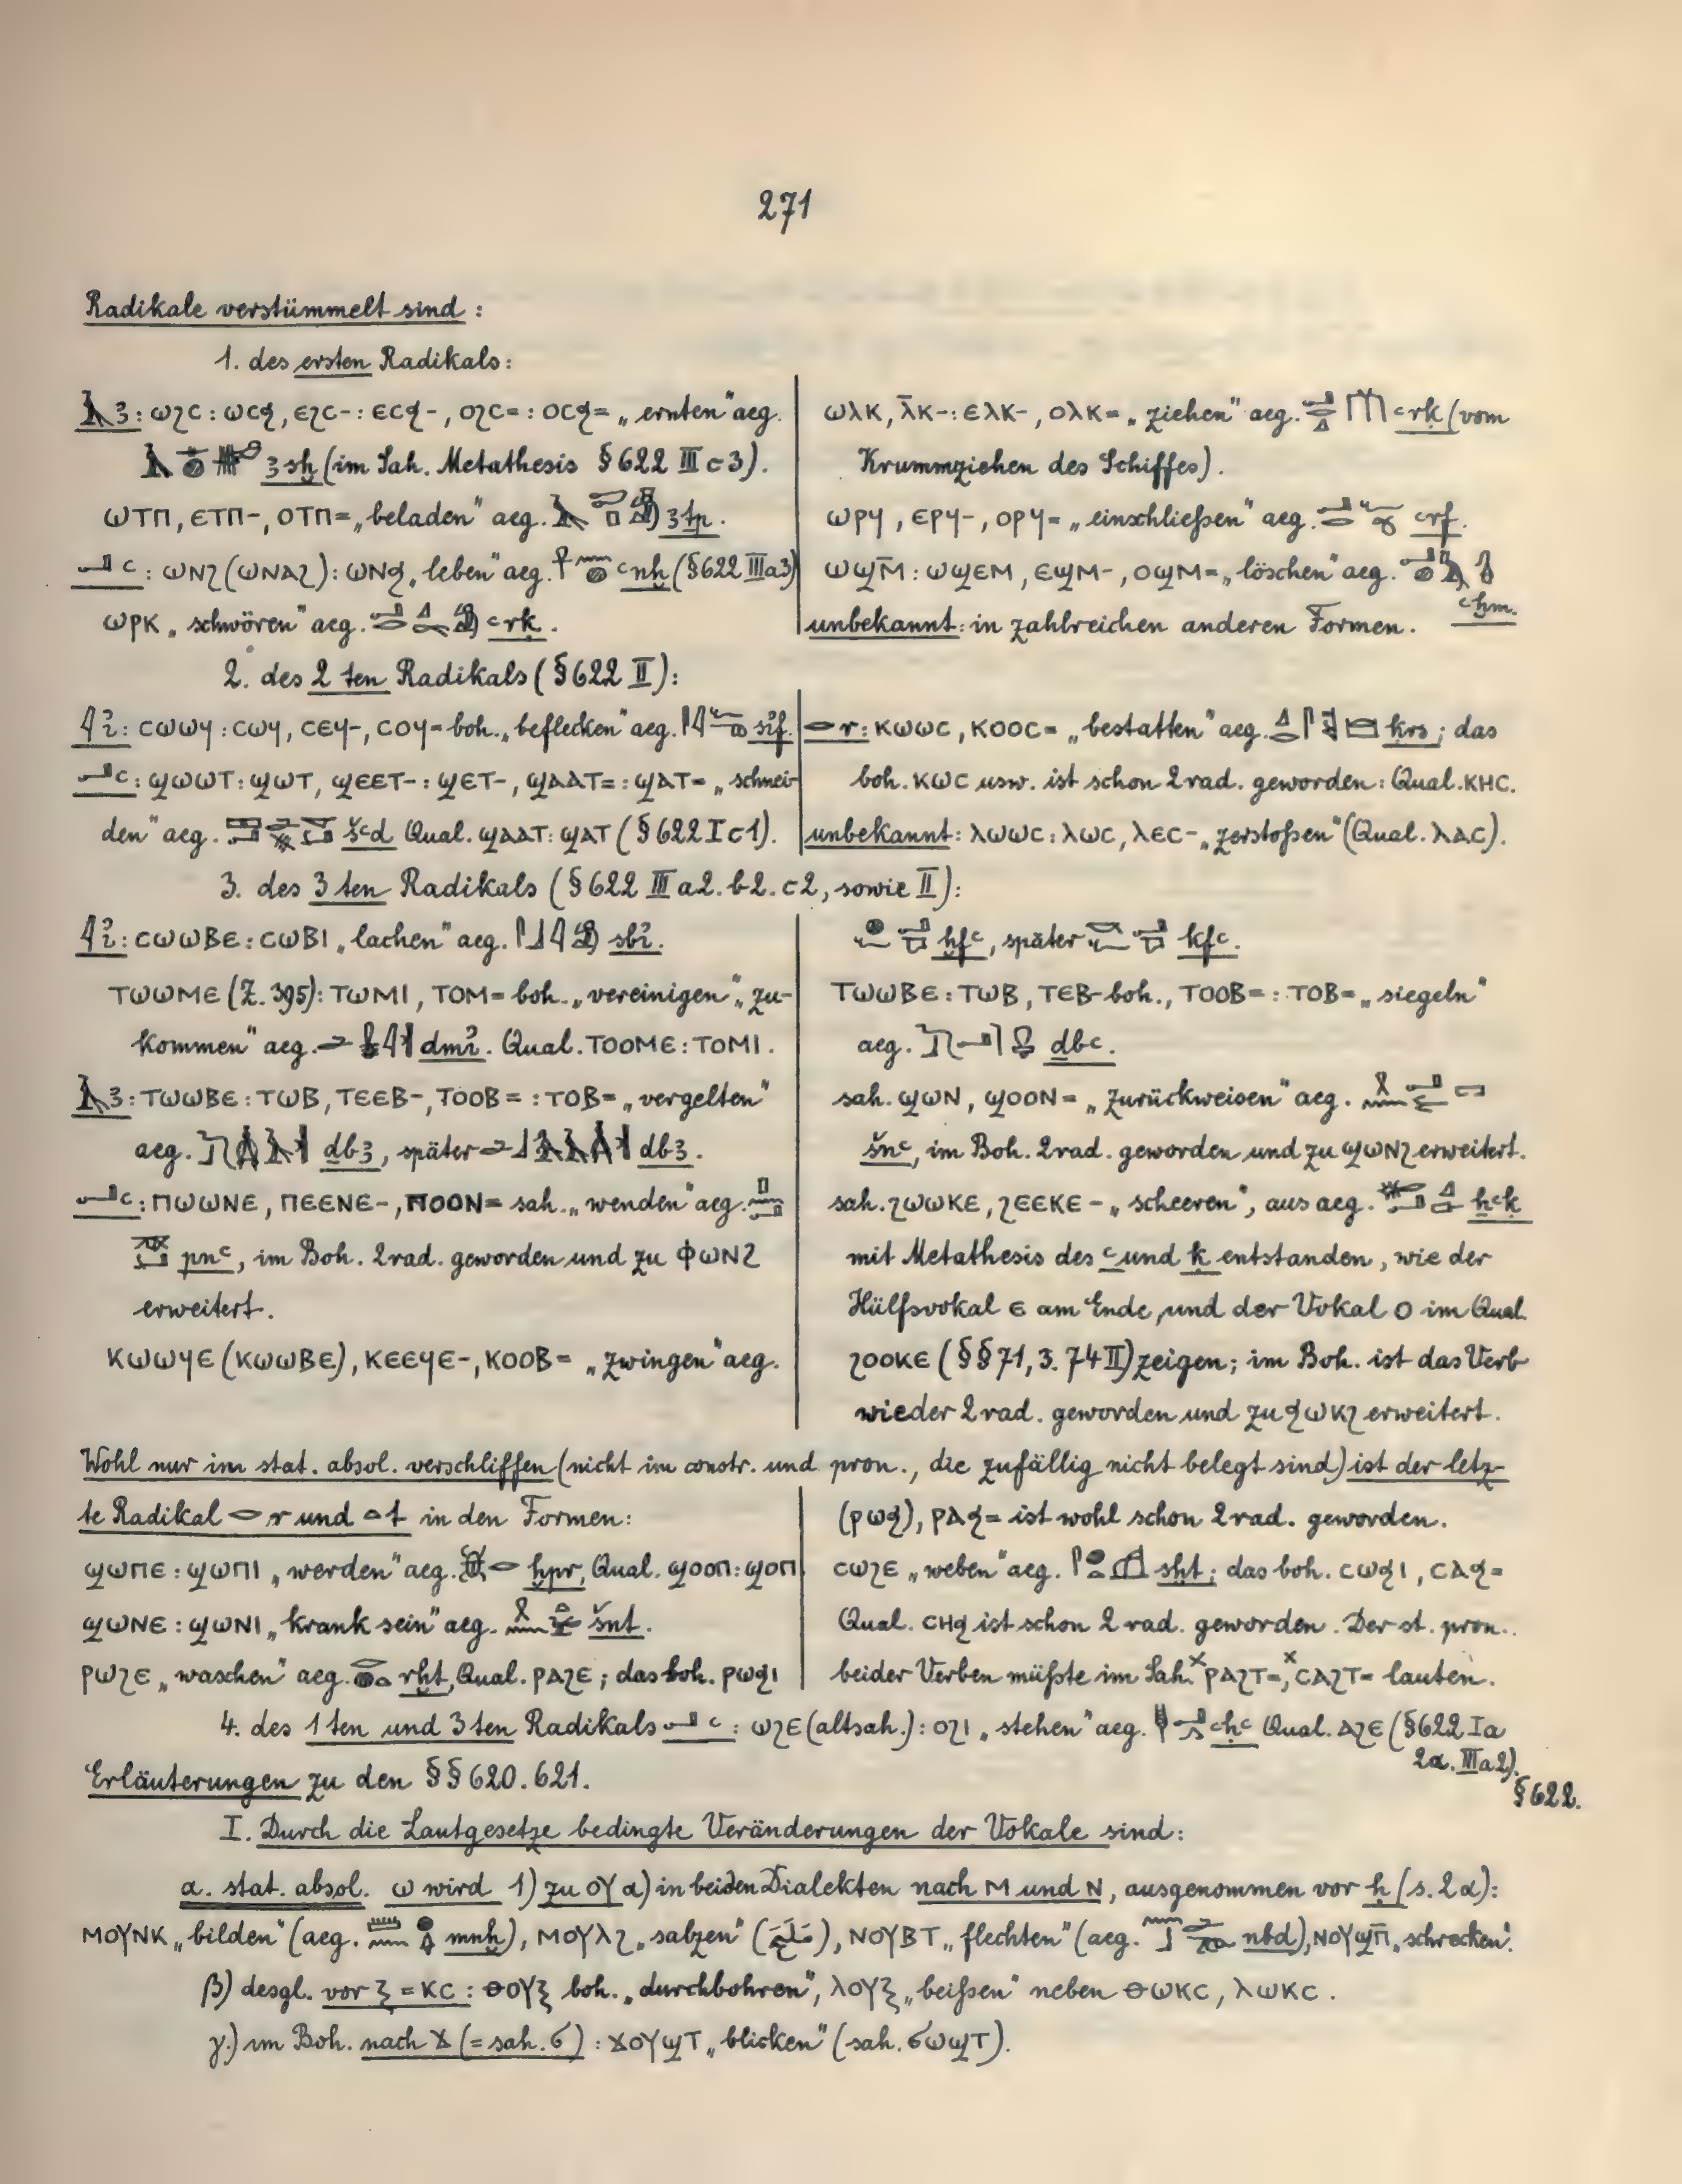 271
Radikale verstümmelt sind:
1. des ersten Radikals:
𓄿 ꜣ: ⲱϩⲥ : ⲱⲥϧ, ⲉϩⲥ- : ⲉⲥϧ-, ⲟϩⲥ= : ⲟⲥϧ= „ernten“ aeg.
ꜣsḫ (im Sah. Metathesis § 622 III c 3).
ⲱⲧⲡ, ⲉⲧⲡ-, ⲟⲧⲡ= „beladen“ aeg. ꜣtp.
𓂝 ꜥ: ⲱⲛϩ (ⲱⲛⲁϩ) : ⲱⲛϧ „leben“ aeg. ꜥnḫ (§ 622 III a 3)
ⲱⲣⲕ „schwören“ aeg. ꜥrḳ.
ⲱⲗⲕ, ⲗ̄ⲕ- : ⲉⲗⲕ-, ⲟⲗⲕ= „ziehen“ aeg. ꜥrḳ (vom
Krummziehen des Schiffes).
ⲱⲣϥ, ⲉⲣϥ-, ⲟⲣϥ= „einschließen“ aeg. ꜥrf.
ⲱϣⲙ̄ : ⲱϣⲉⲙ, ⲉϣⲙ-, ⲟϣⲙ= „löschen“ aeg.
ꜥḫm.
unbekannt: in zahlreichen anderen Formen.
2. des 2ten Radikals (§ 622 II):
𓇋 i̓: ⲥⲱⲱϥ : ⲥⲱϥ, ⲥⲉϥ-, ⲥⲟϥ= boh. „beflecken“ aeg. si̓f.
𓂝 ꜥ: ϣⲱⲱⲧ : ϣⲱⲧ, ϣⲉⲉⲧ- : ϣⲉⲧ-, ϣⲁⲁⲧ= : ϣⲁⲧ= „schnei-
den“ aeg. šꜥd Qual. ϣⲁⲁⲧ : ϣⲁⲧ (§ 622 I c 1).
𓂋 r: ⲕⲱⲱⲥ, ⲕⲟⲟⲥ= „bestatten“ aeg. ḳrs; das
boh. ⲕⲱⲥ usw. ist schon 2rad. geworden: Qual. ⲕⲏⲥ.
unbekannt: ⲗⲱⲱⲥ : ⲗⲱⲥ, ⲗⲉⲥ- „zerstoßen“ (Qual. ⲗⲁⲥ).
3. des 3ten Radikals (§ 622 III a 2. b 2. c 2, sowie II):
𓇋 i̓: ⲥⲱⲱⲃⲉ : ⲥⲱⲃⲓ „lachen“ aeg. sbi̓.
ⲧⲱⲱⲙⲉ (Z. 395) : ⲧⲱⲙⲓ, ⲧⲟⲙ= boh. „vereinigen“ „zu-
kommen“ aeg. dmi̓. Qual. ⲧⲟⲟⲙⲉ : ⲧⲟⲙⲓ.
𓄿 ꜣ: ⲧⲱⲱⲃⲉ : ⲧⲱⲃ, ⲧⲉⲉⲃ-, ⲧⲟⲟⲃ= : ⲧⲟⲃ= „vergelten“
aeg. ḏbꜣ, später dbꜣ.
𓂝 ꜥ: ⲡⲱⲱⲛⲉ, ⲡⲉⲉⲛⲉ-, ⲡⲟⲟⲛ= sah. „wenden“ aeg.
pnꜥ, im Boh. 2rad. geworden und zu ⲫⲱⲛϩ
erweitert.
ⲕⲱⲱϥⲉ (ⲕⲱⲱⲃⲉ), ⲕⲉⲉϥⲉ-, ⲕⲟⲟⲃ= „zwingen“ aeg.
ḫfꜥ, später kfꜥ.
ⲧⲱⲱⲃⲉ : ⲧⲱⲃ, ⲧⲉⲃ- boh., ⲧⲟⲟⲃ= : ⲧⲟⲃ= „siegeln“
aeg. ḏbꜥ.
sah. ϣⲱⲛ, ϣⲟⲟⲛ= „zurückweisen“ aeg.
šnꜥ, im Boh. 2rad. geworden und zu ϣⲱⲛϩ erweitert.
sah. ϩⲱⲱⲕⲉ, ϩⲉⲉⲕⲉ- „scheeren“, aus aeg. ḫꜥḳ
mit Metathesis des ꜥ und ḳ entstanden, wie der
Hülfsvokal ⲉ am Ende, und der Vokal ⲟ im Qual.
ϩⲟⲟⲕⲉ (§§ 71, 3. 74 II) zeigen; im Boh. ist das Verb
wieder 2rad. geworden und zu ϧⲱⲕϩ erweitert.
Wohl nur im stat. absol. verschliffen (nicht im constr. und pron., die zufällig nicht belegt sind) ist der letz-
te Radikal 𓂋 r und 𓏏 t in den Formen:
ϣⲱⲡⲉ : ϣⲱⲡⲓ „werden“ aeg. ḫpr, Qual. ϣⲟⲟⲡ : ϣⲟⲡ
ϣⲱⲛⲉ : ϣⲱⲛⲓ „krank sein“ aeg. šnt.
ⲣⲱϩⲉ „waschen“ aeg. rḫt, Qual. ⲣⲁϩⲉ; das boh. ⲣⲱϧⲓ
(ⲣⲱϧ), ⲣⲁϧ= ist wohl schon 2rad. geworden.
ⲥⲱϩⲉ „weben“ aeg. sḫt; das boh. ⲥⲱϧⲓ, ⲥⲁϧ=
Qual. ⲥⲏϧ ist schon 2rad. geworden. Der st. pron.
beider Verben müßte im Sah. ˣⲣⲁϩⲧ=, ˣⲥⲁϩⲧ= lauten.
4. des 1ten und 3ten Radikals 𓂝 ꜥ: ⲱϩⲉ (altsah.) : ⲟϩⲓ „stehen“ aeg. ꜥḥꜥ Qual. ⲁϩⲉ (§ 622 I a
2α. III a 2).
Erläuterungen zu den §§ 620. 621.
§ 622.
I. Durch die Lautgesetze bedingte Veränderungen der Vokale sind:
a. stat. absol. ⲱ wird 1) zu ⲟⲩ α) in beiden Dialekten nach ⲙ und ⲛ, ausgenommen vor ḫ (s. 2α):
ⲙⲟⲩⲛⲕ „bilden“ (aeg. mnḫ), ⲙⲟⲩⲗϩ „salzen“ (ملح), ⲛⲟⲩⲃⲧ „flechten“ (aeg. nbd), ⲛⲟⲩϣⲡ̄ „schrecken“.
β) desgl. vor ⲝ = ⲕⲥ : ⲑⲟⲩⲝ boh. „durchbohren“, ⲗⲟⲩⲝ „beißen“ neben ⲑⲱⲕⲥ, ⲗⲱⲕⲥ.
γ) im Boh. nach ϫ (= sah. ϭ) : ϫⲟⲩϣⲧ „blicken“ (sah. ϭⲱϣⲧ).